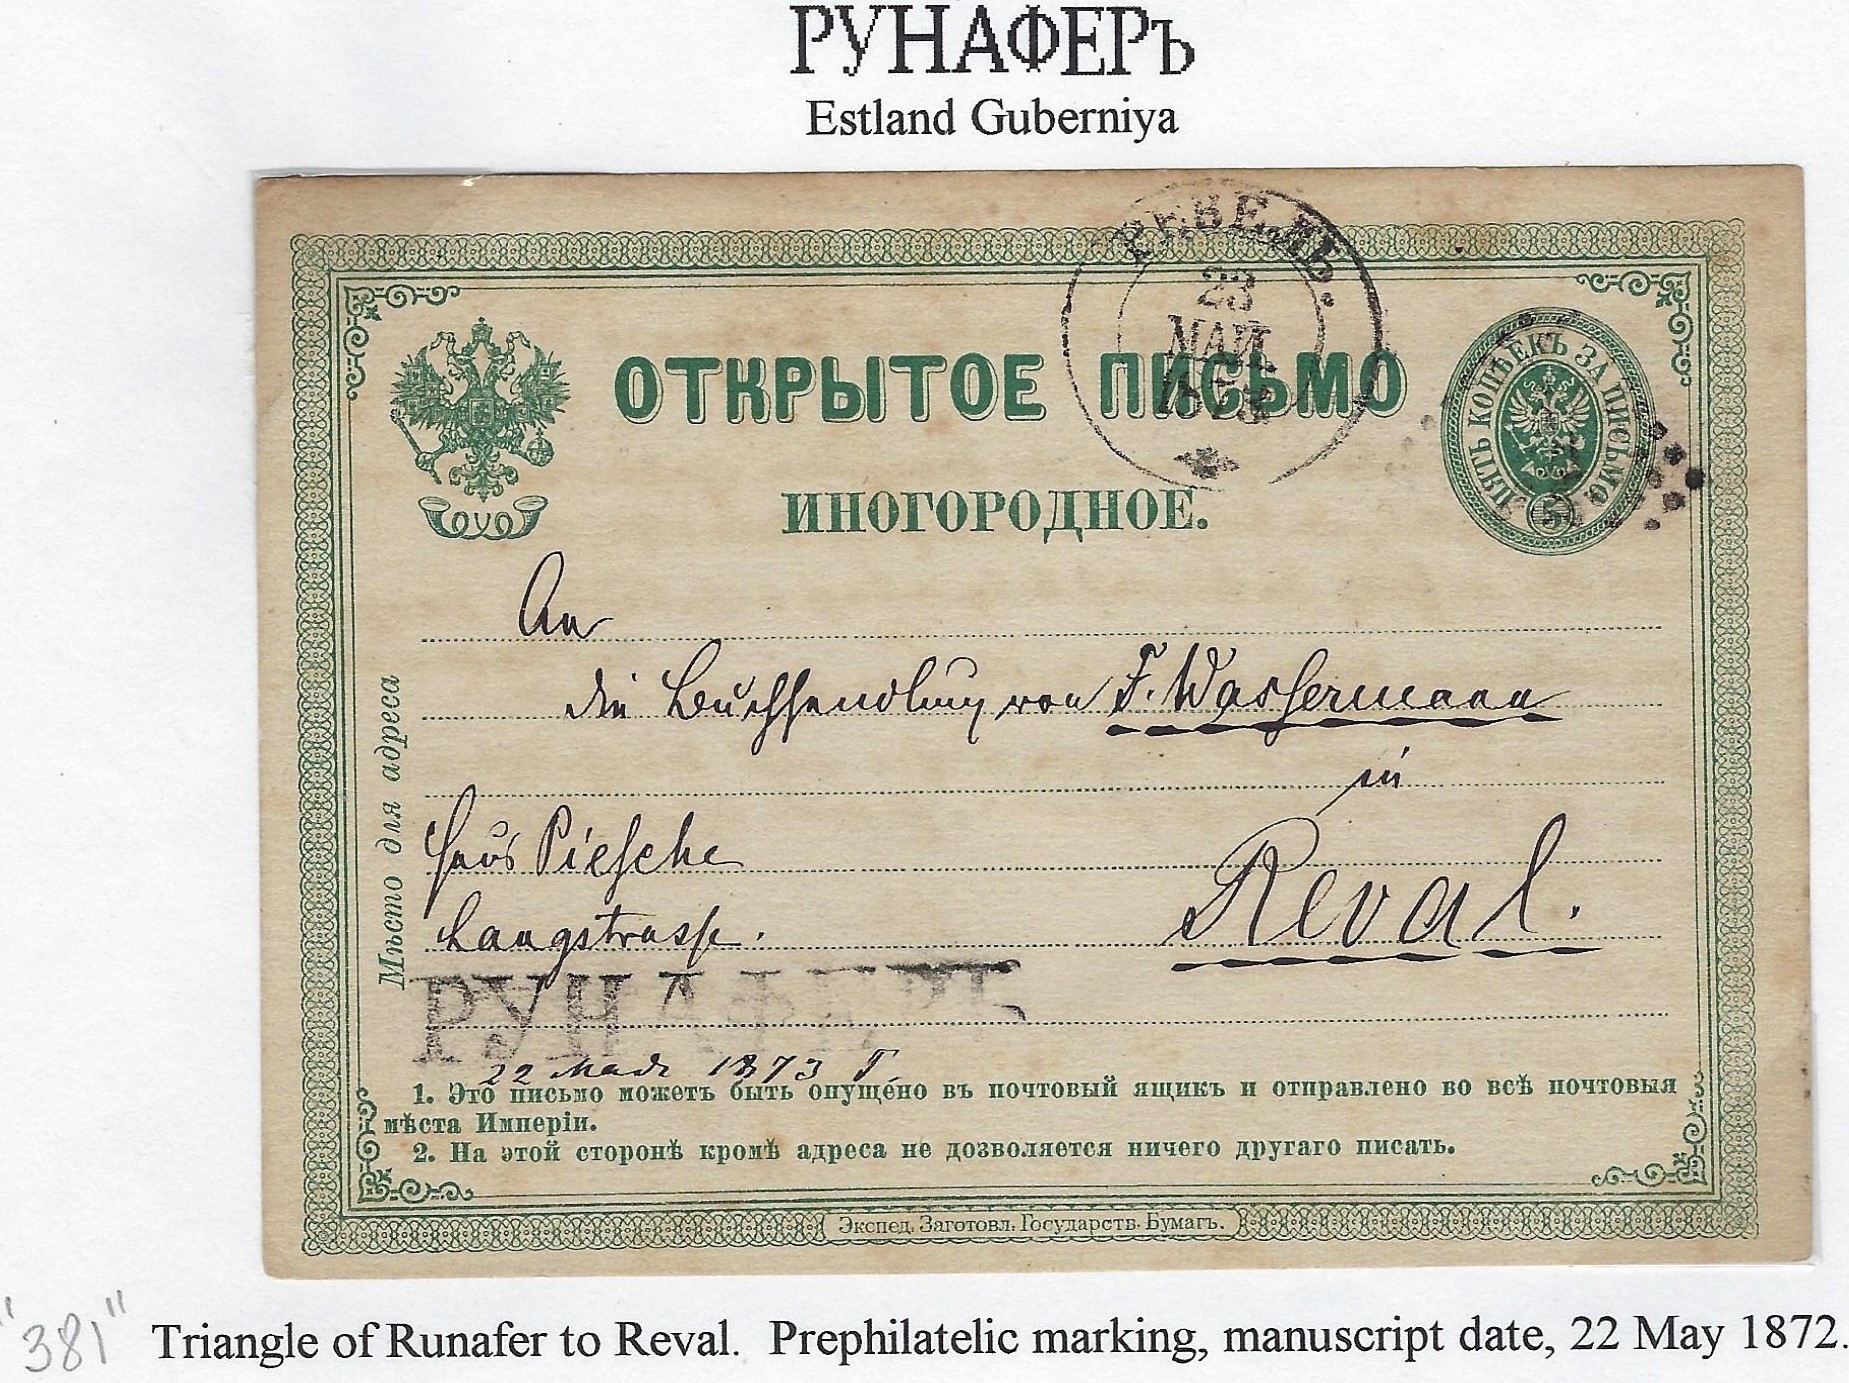 РУНАФЕРЪ
Estland Guberniya
РЕВЕЛЬ.
23
МАЙ
1873
ОТКРЫТОЕ ПИСЬМО
ПЯТЬ КОПѢЕКЪ ЗА ПИСЬМО.
5
ИНОГОРОДНОЕ.
An
die Buchhandlung von F. Wassermann
in
Haus Piesche
Reval.
Langstrasse.
Мѣсто для адреса
РУНАФЕРЪ
22 мая 1873 г.
1. Это письмо можетъ быть опущено въ почтовый ящикъ и отправлено во всѣ почтовыя
мѣста Имперіи.
2. На этой сторонѣ кромѣ адреса не дозволяется ничего другаго писать.
Экспед. Заготовл. Государств. Бумагъ.
"381" Triangle of Runafer to Reval. Prephilatelic marking, manuscript date, 22 May 1872.